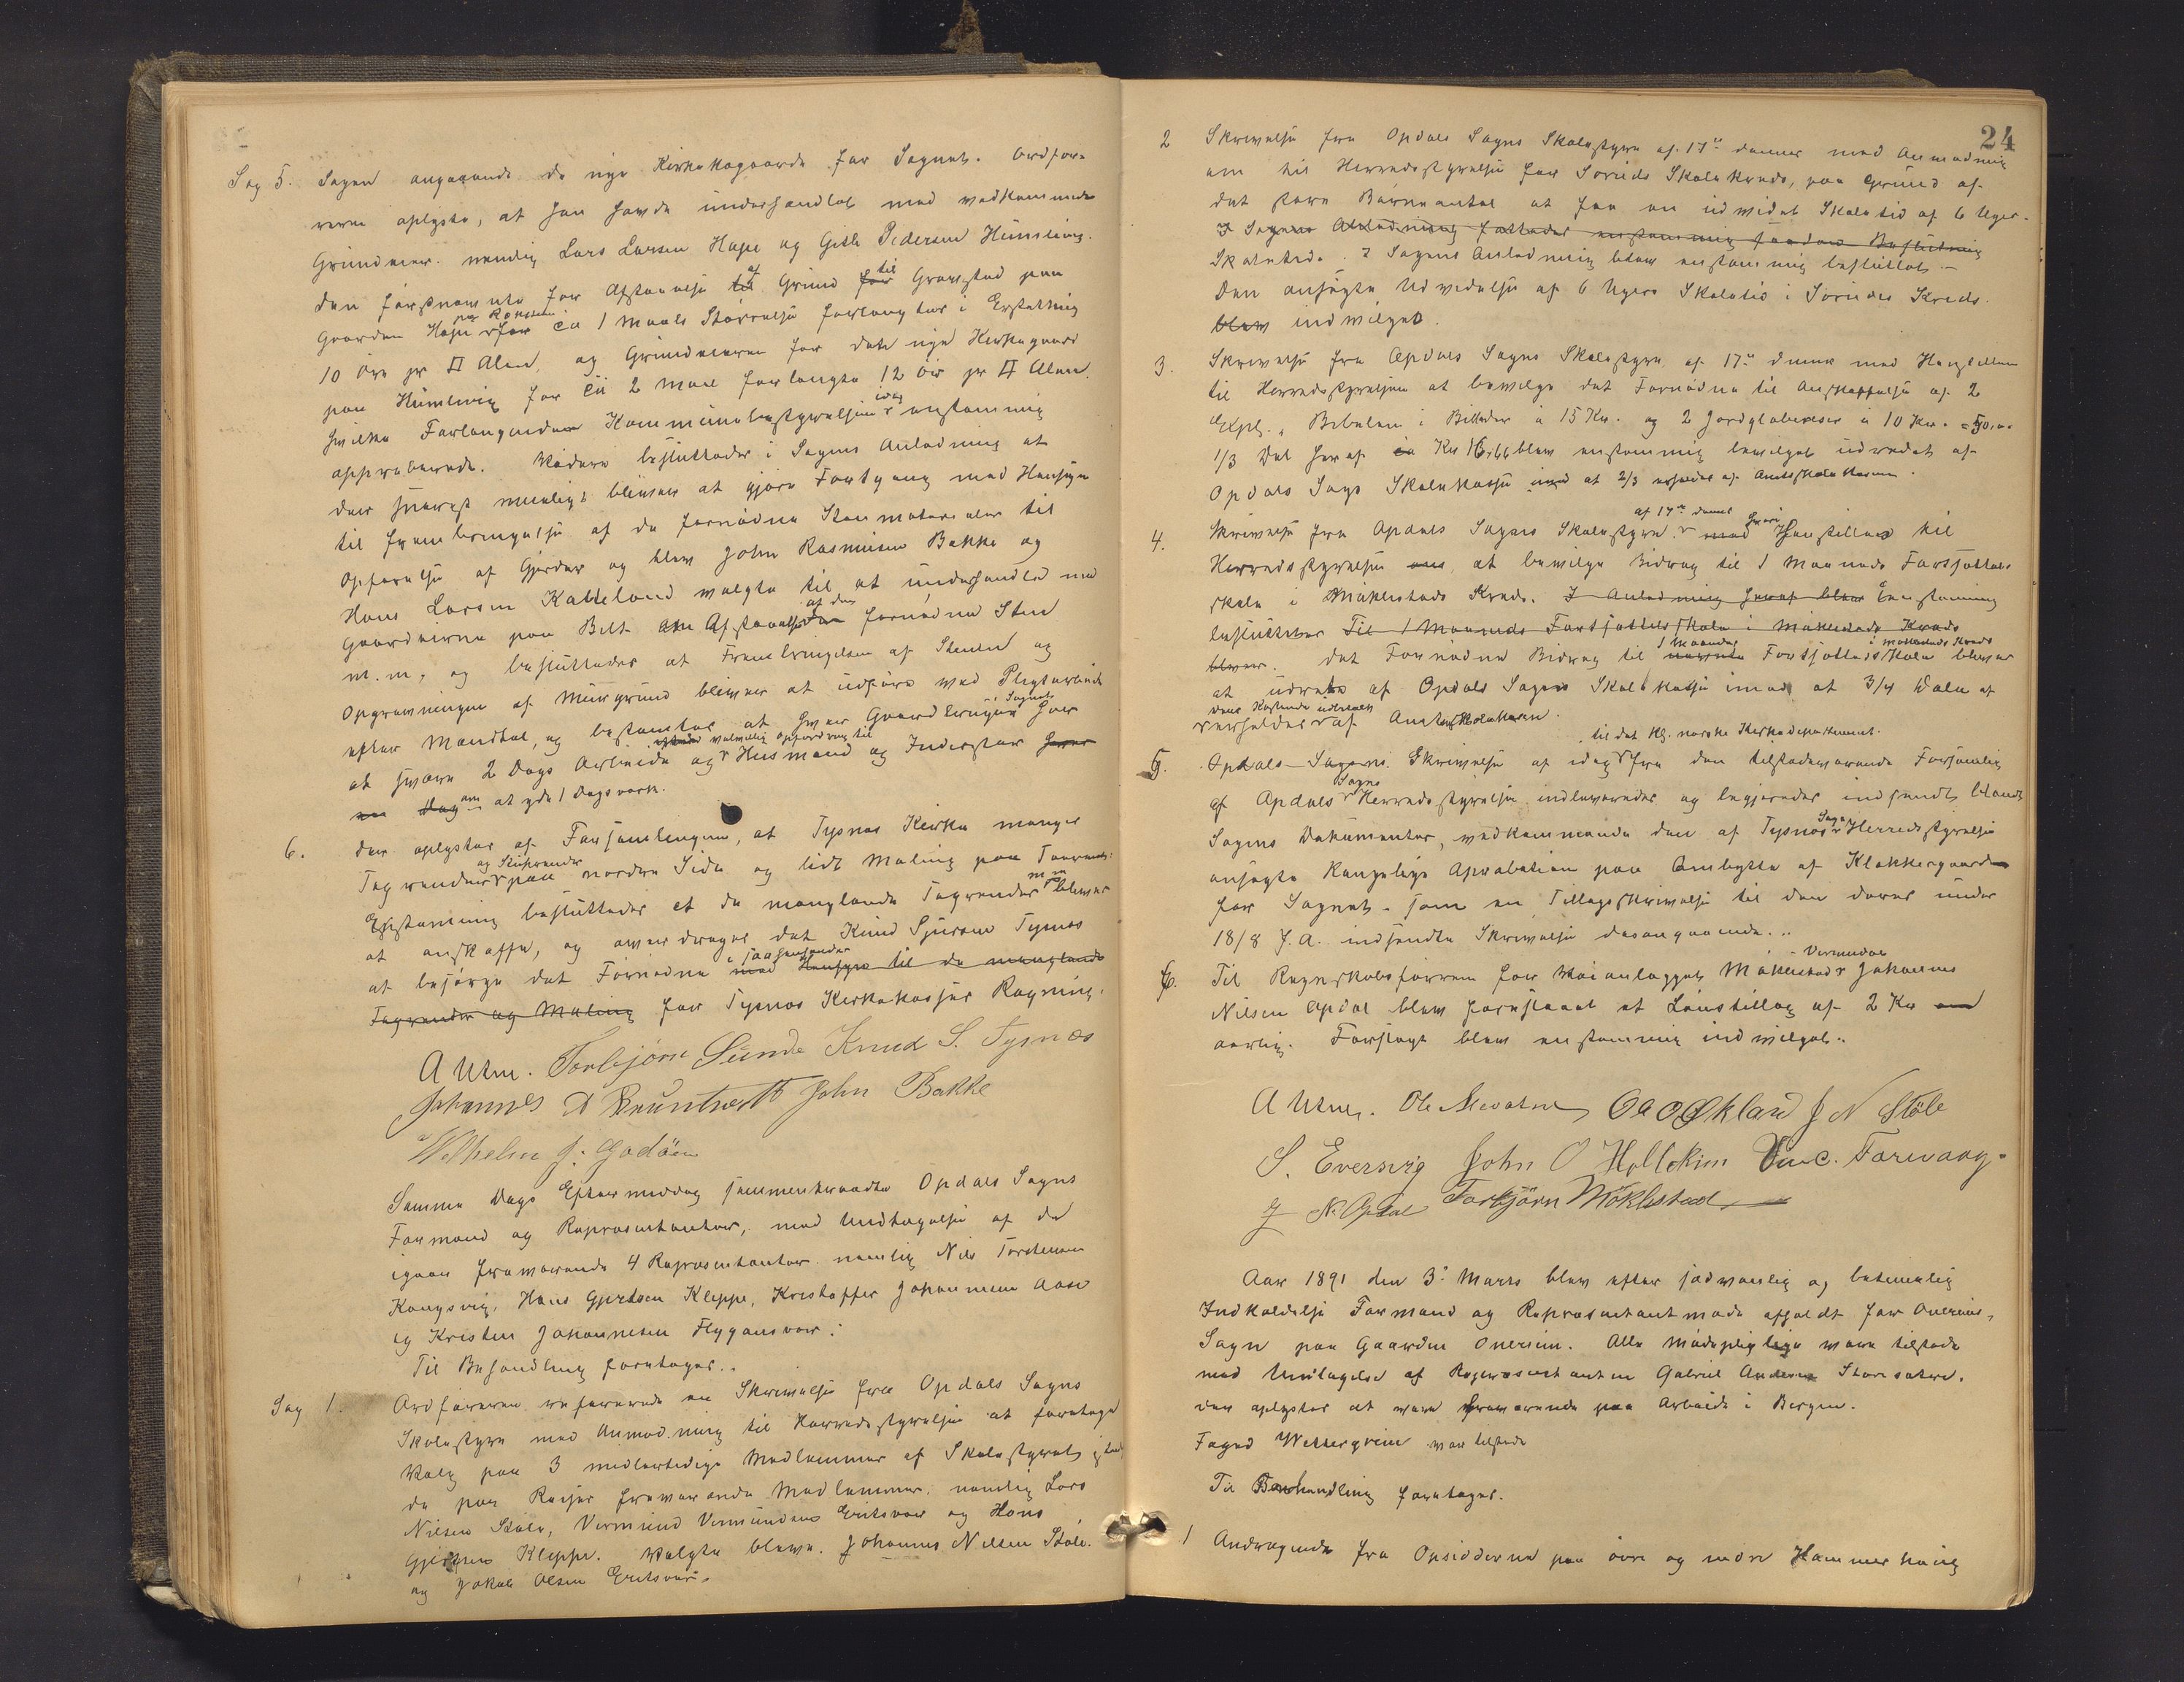 Sag 5. Sagen angaaende de nye Kirkekogaarde for Sognet. Ordfør-
reren oplyste, at han havde underhandlet med vedkommende
Grundeier. nemlig Lars Larsen Hope og Gitle Pedersen Humlevig.
den førstnævnte for Afstaaelse til af Grund for til Gravsted paa
Gaarden Hope for ca 1 Maals Størrelse forlangtes i Erstatning
10 Øre pr □ Alen, og Grundeieren for det nye Kirkegaard
paa Humlevig for ca 2 Maal forlangte 12 Øre pr □ Alen.
hvilke Forlangender Kommunebestyrelsen idag enstemmig
approberede. Videre besluttedes i Sagens Anledning at
der snarest muligt bliver at gjøre Forføyning med Hensyn
til frembringelse af de fornødne Stenmaterialer til
Opførelse af Gjerder og blev John Rasmusen Bakke og
Hans Larsen Kaldeland valgte til at underhandle med
Gaardeierne paa Belt om Afstaaelse af den fornødne Sten
m.m, og besluttedes at Frembringelsen af Stenen og
Opgravningen af Murgrund bliver at udføre ved Pligtarbeide
efter Mandtal, og bestemtes at hver Gaardbruger i Sognet har
at svare 2 Dags Arbeide og ved velvillig opfordring til Husmænd og Inderster hver
en Dag om at yde 1 Dagsverk.
6. Der oplystes af Forsamlingen, at Tysnes Kirke manger
Tagrender og Stuprender paa nordre Side og lidt Maling paa Taarnet.
Enstemmig besluttedes at de manglende Tagrender m m bliver
at anskaffe, og overdroges det Knud Sjursen Tysnes
at besørge det Fornødne i saahenseende med Hensyn til de manglende
Tagrender og Maling for Tysnes Kirkekasses Regning.
A Utne. Torbjørn Sunde Knud S. Tysnes
Johannes D Bruntveit John Bakke
Wilhelm J. Godøen
Samme Dags Eftermiddag sammentraadte Opdals Sogns
Formænd og Repræsentanter, med Undtagelse af de
igaar fraværende 4 Repræsentanter nemlig Nils Torstensen
Kongsvig, Hans Gjertsen Kleppe, Kristoffer Johannesen Aase
og Kristen Johannesen Flygansvær.
Til Behandling foretoges..
Sag 1. Ordføreren refererede en Skrivelse fra Opdals Sogns
Skolestyre med Anmodning til Herredsstyrelsen at foretage
Valg paa 3 midlertidige Medlemmer af Skolestyret isted
de paa Reiser fraværende Medlemmer: nemlig Lars
Nilsen Støle, Vermund Vermundsen Eritsvær og Hans
Gjertsen Kleppe. Valgte bleve. Johannes Nilsen Støle.
og Jakob Olsen Eritsvær.
24
2 Skrivelse fra Opdals Sogns Skolestyre af 17de dennes med Anmodning
om til Herredsstyrelsen for Søreide Skolekreds, paa Grund af
det store Børneantal at faa en udvidet Skoletid af 6 Uger.
I Sagens Anledning fattedes enstemmig saadan Beslutning
Skoletid. I Sagens Anledning blev enstemmig besluttet.-
Den ansøgte Udvidelse af 6 Ugers Skoletid i Søreides Kreds.
blev indvilget.
3. Skrivelse fra Opdals Sogns Skolestyre af 17de dennes med Henstillen
til Herredsstyrelsen at bevilge det Fornødne til Anskaffelse af 2
Expl. „Bibelen i Billeder a 15 Kr. og 2 Jordglobusser a 10 Kr. = 50,00
1/3 Del heraf ca Kr 16,66 blev enstemmig bevilget udredet af
Opdals Sogs Skolekasse imod at 2/3 erholdes af Amtsskolekassen.
4. Skrivelse fra Opdals Sogns Skolestyre af 17de dennes med hvori Henstilles til
Herredsstyrelsen om, at bevilge Bidrag til 1 Maaneds Forsættelses
skole i Møklestads Kreds. I Anledning heraf blev Enstemmig
besluttedes Til 1 Maaneds Fortsættelsesskole i Møklestads Kreds
bliver. det Fornødne Bidrag til nævnte 1 Maaneds Fortsættelsesskole i Møklestads Kreds bliver
at udrede af Opdals Sogns Skolekasse imod at 3/4 Dele af
dens Kostende udbetales erholdes af Amtsskolekassen.
5. Opdals Sogns Skrivelse af idag til det Kg. norske Kirkedepartement. fra den tilstedeværende Forsamling
af Opdals Sogns Herredsstyrelse indleveredes og begjæredes indsendt blandt
Sagens Dokumenter, vedkommende den af Tysnes Sogns Herredsstyrelse
ansøgte Kongelige Aprobation paa Ombytte af Klokkergaarde
for Sognet. som en Tillægsskrivelse til den deres under
18/8 f.A. indsendte Skrivelse desangaaende..
6. Til Regnskabsføreren for Veianlægget Møklestad-Vermedal Johannes
Nilsen Opdal blev foreslaaet et Lønstillæg af 2 Kr
aarlig. Forslaget blev enstemmig indvilget.
A Utne. Ole Nevatne O A O Økland J N Støle
S. Eversvig John O Hollekim Vinc. Farevaag.
J N. Opdal Torbjørn Møklestad
Aar 1891 den 3. Marts blev efter sedvanlig og betimelig
Indkaldelse Formænd og Repræsentantmøde afholdt for Onereims
Sogn paa Gaarden Onereim. Alle Mødepligtige vare tilstede
med Undtagelse af Repræsentanten Gabriel Andersen Storesætre.
der oplystes at være fraværende paa Arbeide i Bergen.
Foged Wettergren var tilstede
Til Behandling foretoges.
1 Andragende fra Opsidderne paa øvre og nedre Hammerhaug